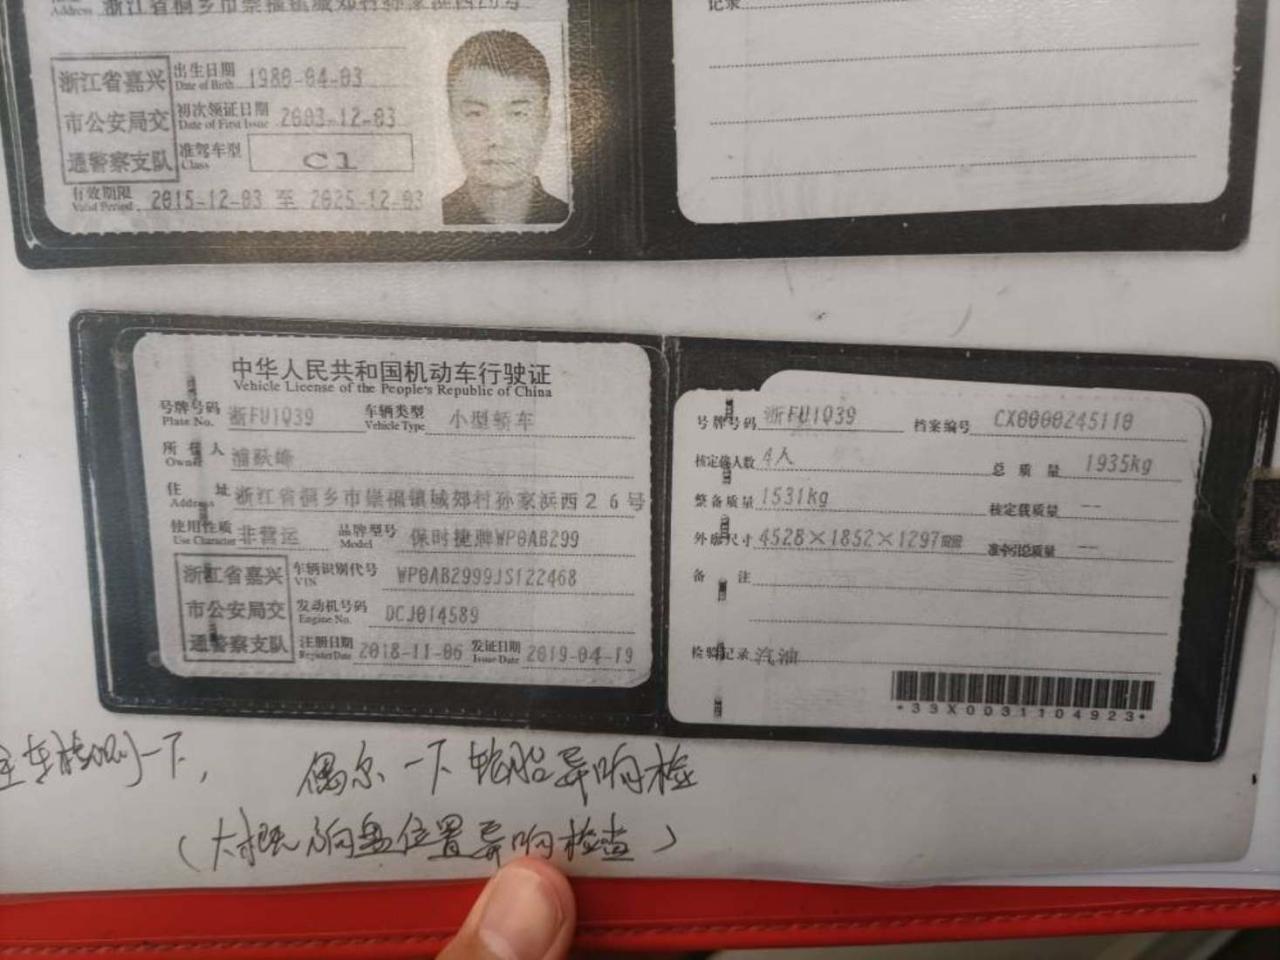 Address 浙江省桐乡市崇福镇城郊村孙家浜西26号
浙江省嘉兴
市公安局交
通警察支队
出生日期
Date of Birth 1980-04-03
初次领证日期
Date of First Issue 2003-12-03
准驾车型
Class C1
有效期限
Valid Period 2015-12-03 至 2025-12-03
记录
中华人民共和国机动车行驶证
Vehicle License of the People's Republic of China
号牌号码 浙FU1Q39 车辆类型 小型轿车
Plate No. Vehicle Type
所有人
Owner
住址 浙江省桐乡市崇福镇城郊村孙家浜西26号
Address
使用性质 非营运 品牌型号 保时捷牌WP0AB299
Use Character Model
浙江省嘉兴
市公安局交
通警察支队
车辆识别代号 WP0AB2999JS122468
VIN
发动机号码 DCJ014589
Engine No.
注册日期 2018-11-06 发证日期 2019-04-19
Register Date Issue Date
号牌号码 浙FU1Q39 档案编号 CX0000245110
核定载人数 4人 总质量 1935kg
整备质量 1531kg 核定载质量 --
外廓尺寸 4528×1852×1297 准牵引总质量 --
备注
检验记录 汽油
*33X0031104923*
车检测一下, 偶尔一下轮胎异响检
(大概方向盘位置异响检查)